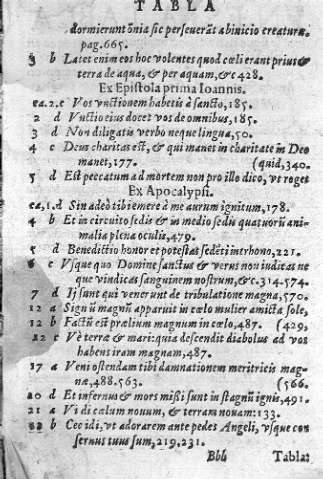 TABLA
dormierunt õnia sic perseuerãt ab inicio creaturæ.
pag.665.
3 b Latet enim eos hoc volentes quod cœli erant prius &
terra de aqua, & per aquam, &c 428.
Ex Epistola prima Ioannis.
ca.2.c Vos vnctionem habetis à sancto,185.
2 d Vnctio eius docet vos de omnibus,185.
3 d Non diligatis verbo neque lingua,50.
4 c Deus charitas est, & qui manet in charitate in Deo
manet,177. (quid,340.
5 d Est peccatum ad mortem non pro illo dico, vt roget
Ex Apocalypsi.
ca,1.d Sin adeò tibi emere à me aurum ignitum,178.
4 b Et in circuito sedis & in medio sedis quatuor ũ ani-
malia plena oculis,479.
5 d Benedictio honor et potestas sedẽti in throno,221.
6 c Vsque quo Domine sanctus & verus non iudicas ne
que vindicas sanguinem nostrum, &c.314.574.
7 d Ij sunt qui venerunt de tribulatione magna,570.
12 a Signũ magnũ apparuit in cœlo mulier amicta sole,
12 b Factũ est prælium magnum in cœlo,487. (429,
22 c Vè terræ & mari:quia descendit diabolus ad vos
habens iram magnam,487.
17 a Veni ostendam tibi damnationem meritricis mag-
næ,488.563. (566.
20 d Et infernus & mors missi sunt in stagnũ ignis,491.
21 a Vidi cælum nouum, & terram nouam:133.
22 b Cecidi, vt adorarem ante pedes Angeli, vsque con
seruus tuus sum,219,231.
Bbb Tabla: